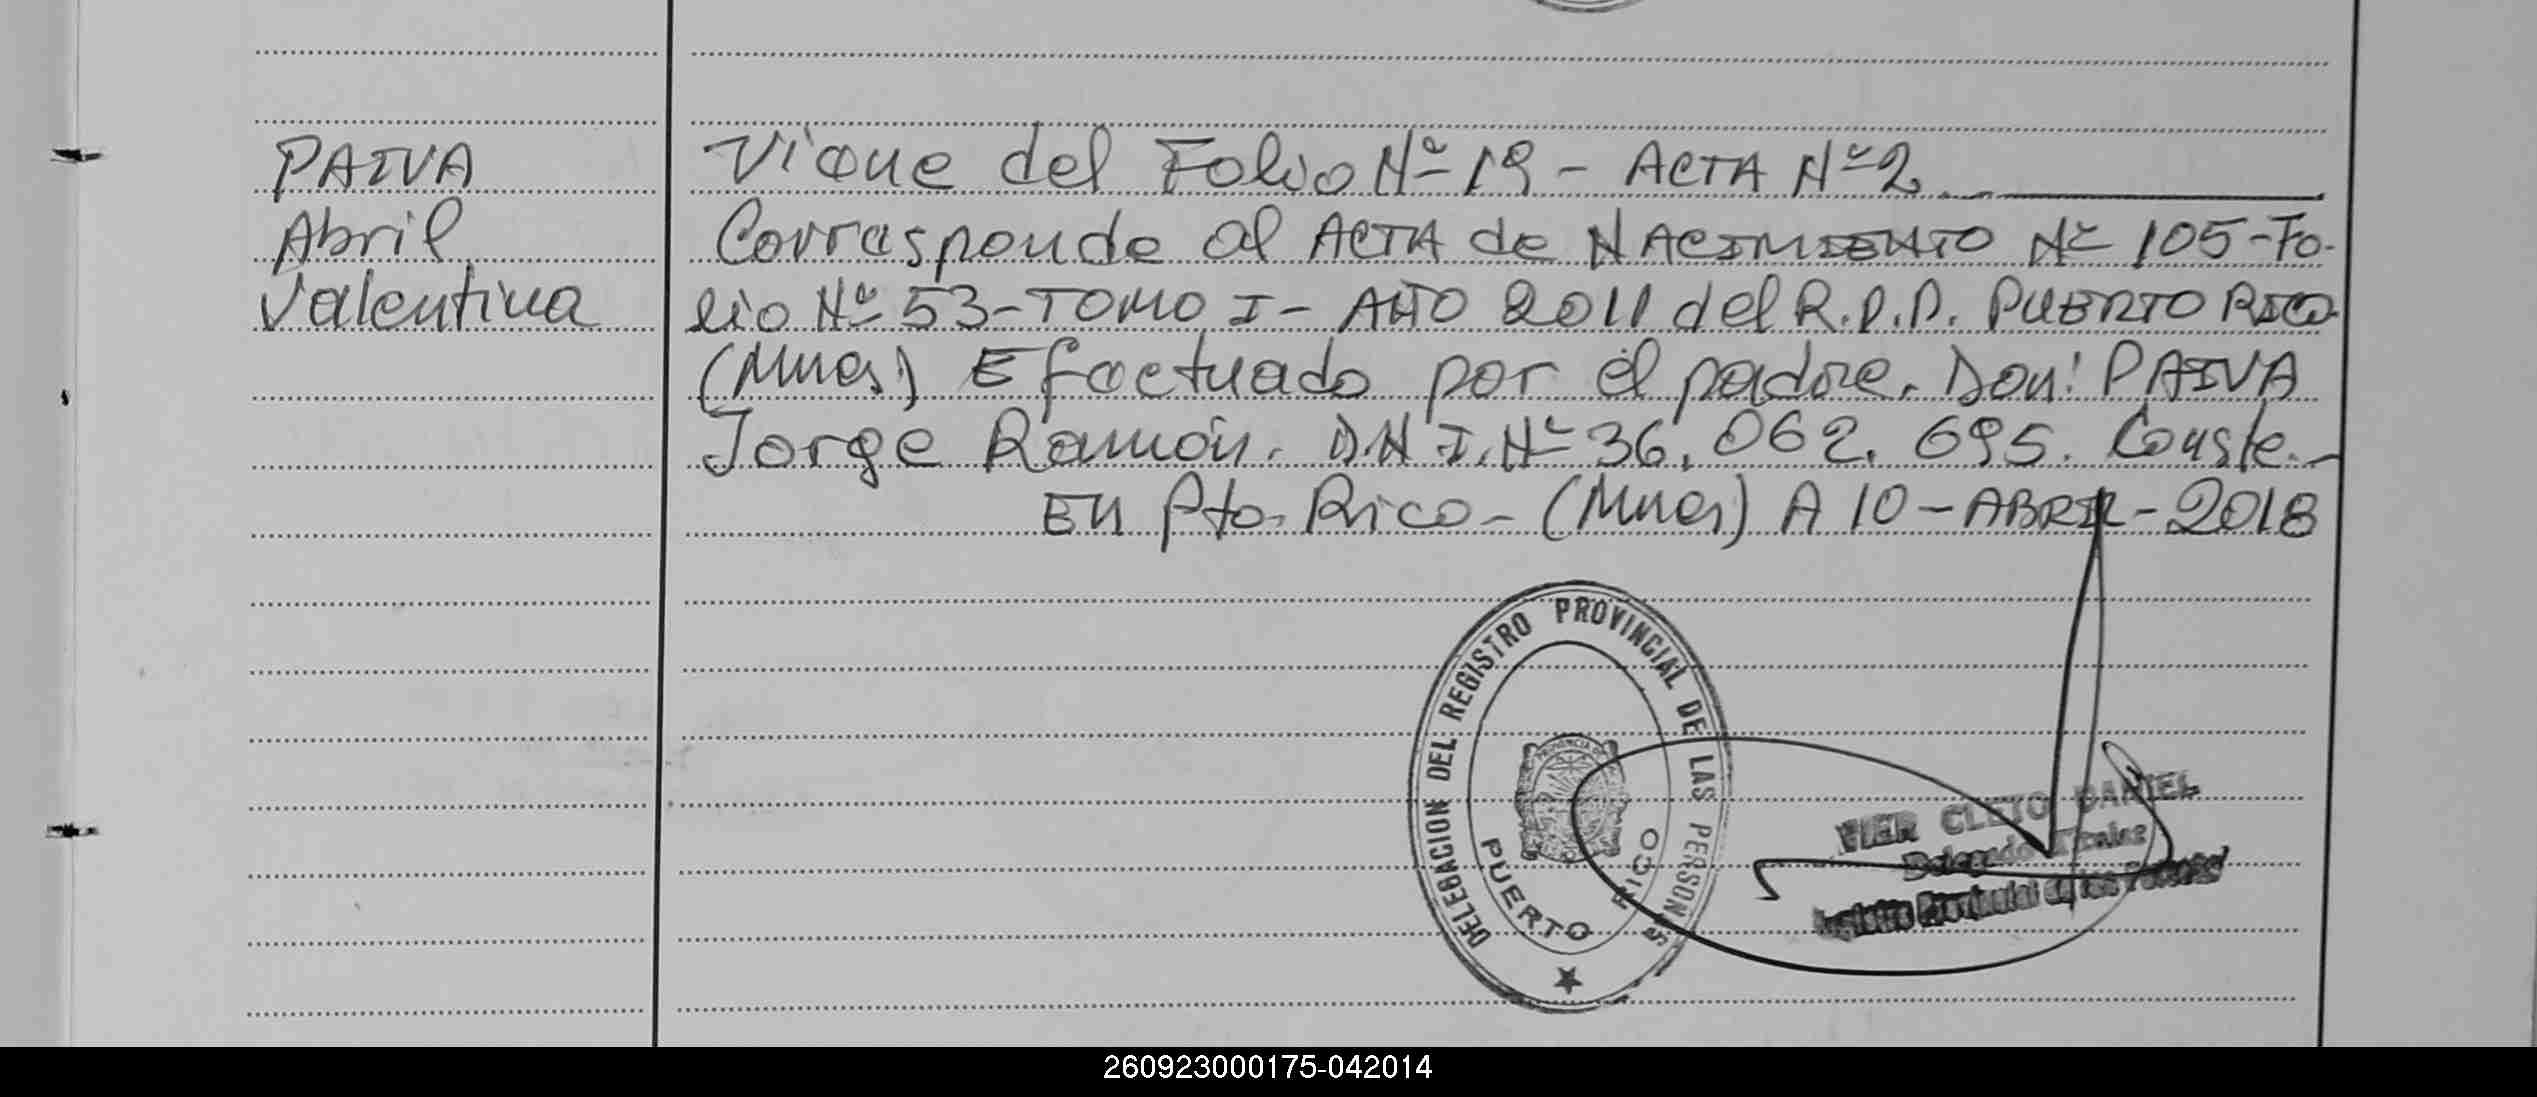 PAIVA
Abril
Valentina
Viene del Folio Nº 19 - ACTA Nº 2
Corresponde al ACTA de NACIMIENTO Nº 105-Fo-
lio Nº 53-TOMO I- AÑO 2011 del R.P.P. PUERTO RICO
(Mnes) Efectuado por el padre. Don: PAIVA
Jorge Ramón. D.N.I. Nº 36.062.695. Conste.-
EN Pto. Rico-(Mnes) A 10-ABRIL-2018
DELEGACION DEL REGISTRO PROVINCIAL DE LAS PERSONAS
PUERTO RICO
CLETO DANIEL
Delegado Titular
Provincial de las
260923000175-042014